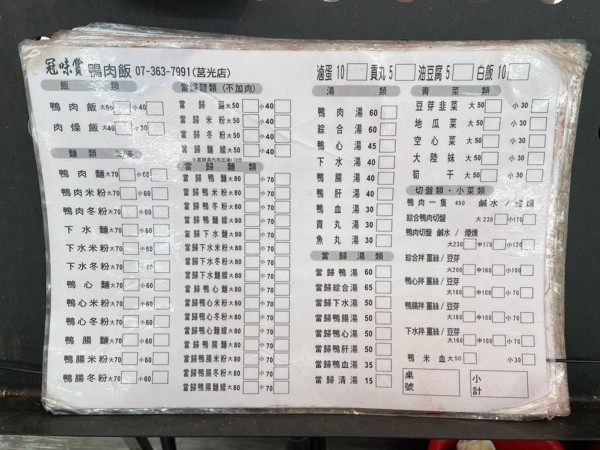 冠味賞 鴨肉飯 07-363-7991(莒光店)
滷蛋 10 貢丸 5 油豆腐 5 白飯 10
飯類
鴨肉飯 大50 小40
肉燥飯 大40 小30
麵類
鴨肉麵 大70 小60
鴨肉米粉 大70 小60
鴨肉冬粉 大70 小60
下水麵 大70 小60
下水米粉 大70 小60
下水冬粉 大70 小60
鴨心麵 大70 小60
鴨心米粉 大70 小60
鴨心冬粉 大70 小60
鴨腸麵 大70 小60
鴨腸米粉 大70 小60
鴨腸冬粉 大70 小60
當歸麵類(不加肉)
當歸麵 大50 小40
當歸米粉 大50 小40
當歸冬粉 大50 小40
當歸麵線 大50 小40
當歸麵類
當歸鴨麵 大80 小70
當歸鴨米粉 大80 小70
當歸鴨冬粉 大80 小70
當歸鴨麵線 大80 小70
當歸下水麵 大80 小70
當歸下水米粉 大80 小70
當歸下水冬粉 大80 小70
當歸下水麵線 大80 小70
當歸鴨心麵 大80 小70
當歸鴨心米粉 大80 小70
當歸鴨心冬粉 大80 小70
當歸鴨心麵線 大80 小70
當歸鴨腸麵 大80 小70
當歸鴨腸米粉 大80 小70
當歸鴨腸冬粉 大80 小70
當歸鴨腸麵線 大80 小70
湯類
鴨肉湯 60
綜合湯 60
鴨心湯 45
下水湯 40
鴨腸湯 40
鴨肝湯 30
鴨血湯 30
貢丸湯 30
魚丸湯 30
當歸湯類
當歸鴨湯 60
當歸綜合湯 65
當歸下水湯 50
當歸鴨腸湯 50
當歸鴨心湯 50
當歸鴨肝湯 35
當歸鴨血湯 35
當歸清湯 15
青菜類
豆芽韭菜 大50 小30
地瓜菜 大50 小30
空心菜 大50 小30
大陸妹 大50 小30
筍干 大50 小30
切盤類、小菜類
鴨肉一隻 450 鹹水 / 煙燻
綜合鴨肉切盤 大230 小170
鴨肉切盤 鹹水 / 煙燻
大230 中170 小120
綜合拌 薑絲 / 豆芽
大200 中160 小100
鴨心拌 薑絲 / 豆芽
大160 中100 小70
鴨腸拌 薑絲 / 豆芽
大160 中100 小70
下水拌 薑絲 / 豆芽
大160 中100 小70
鴨米血 大50 小30
桌號
小計